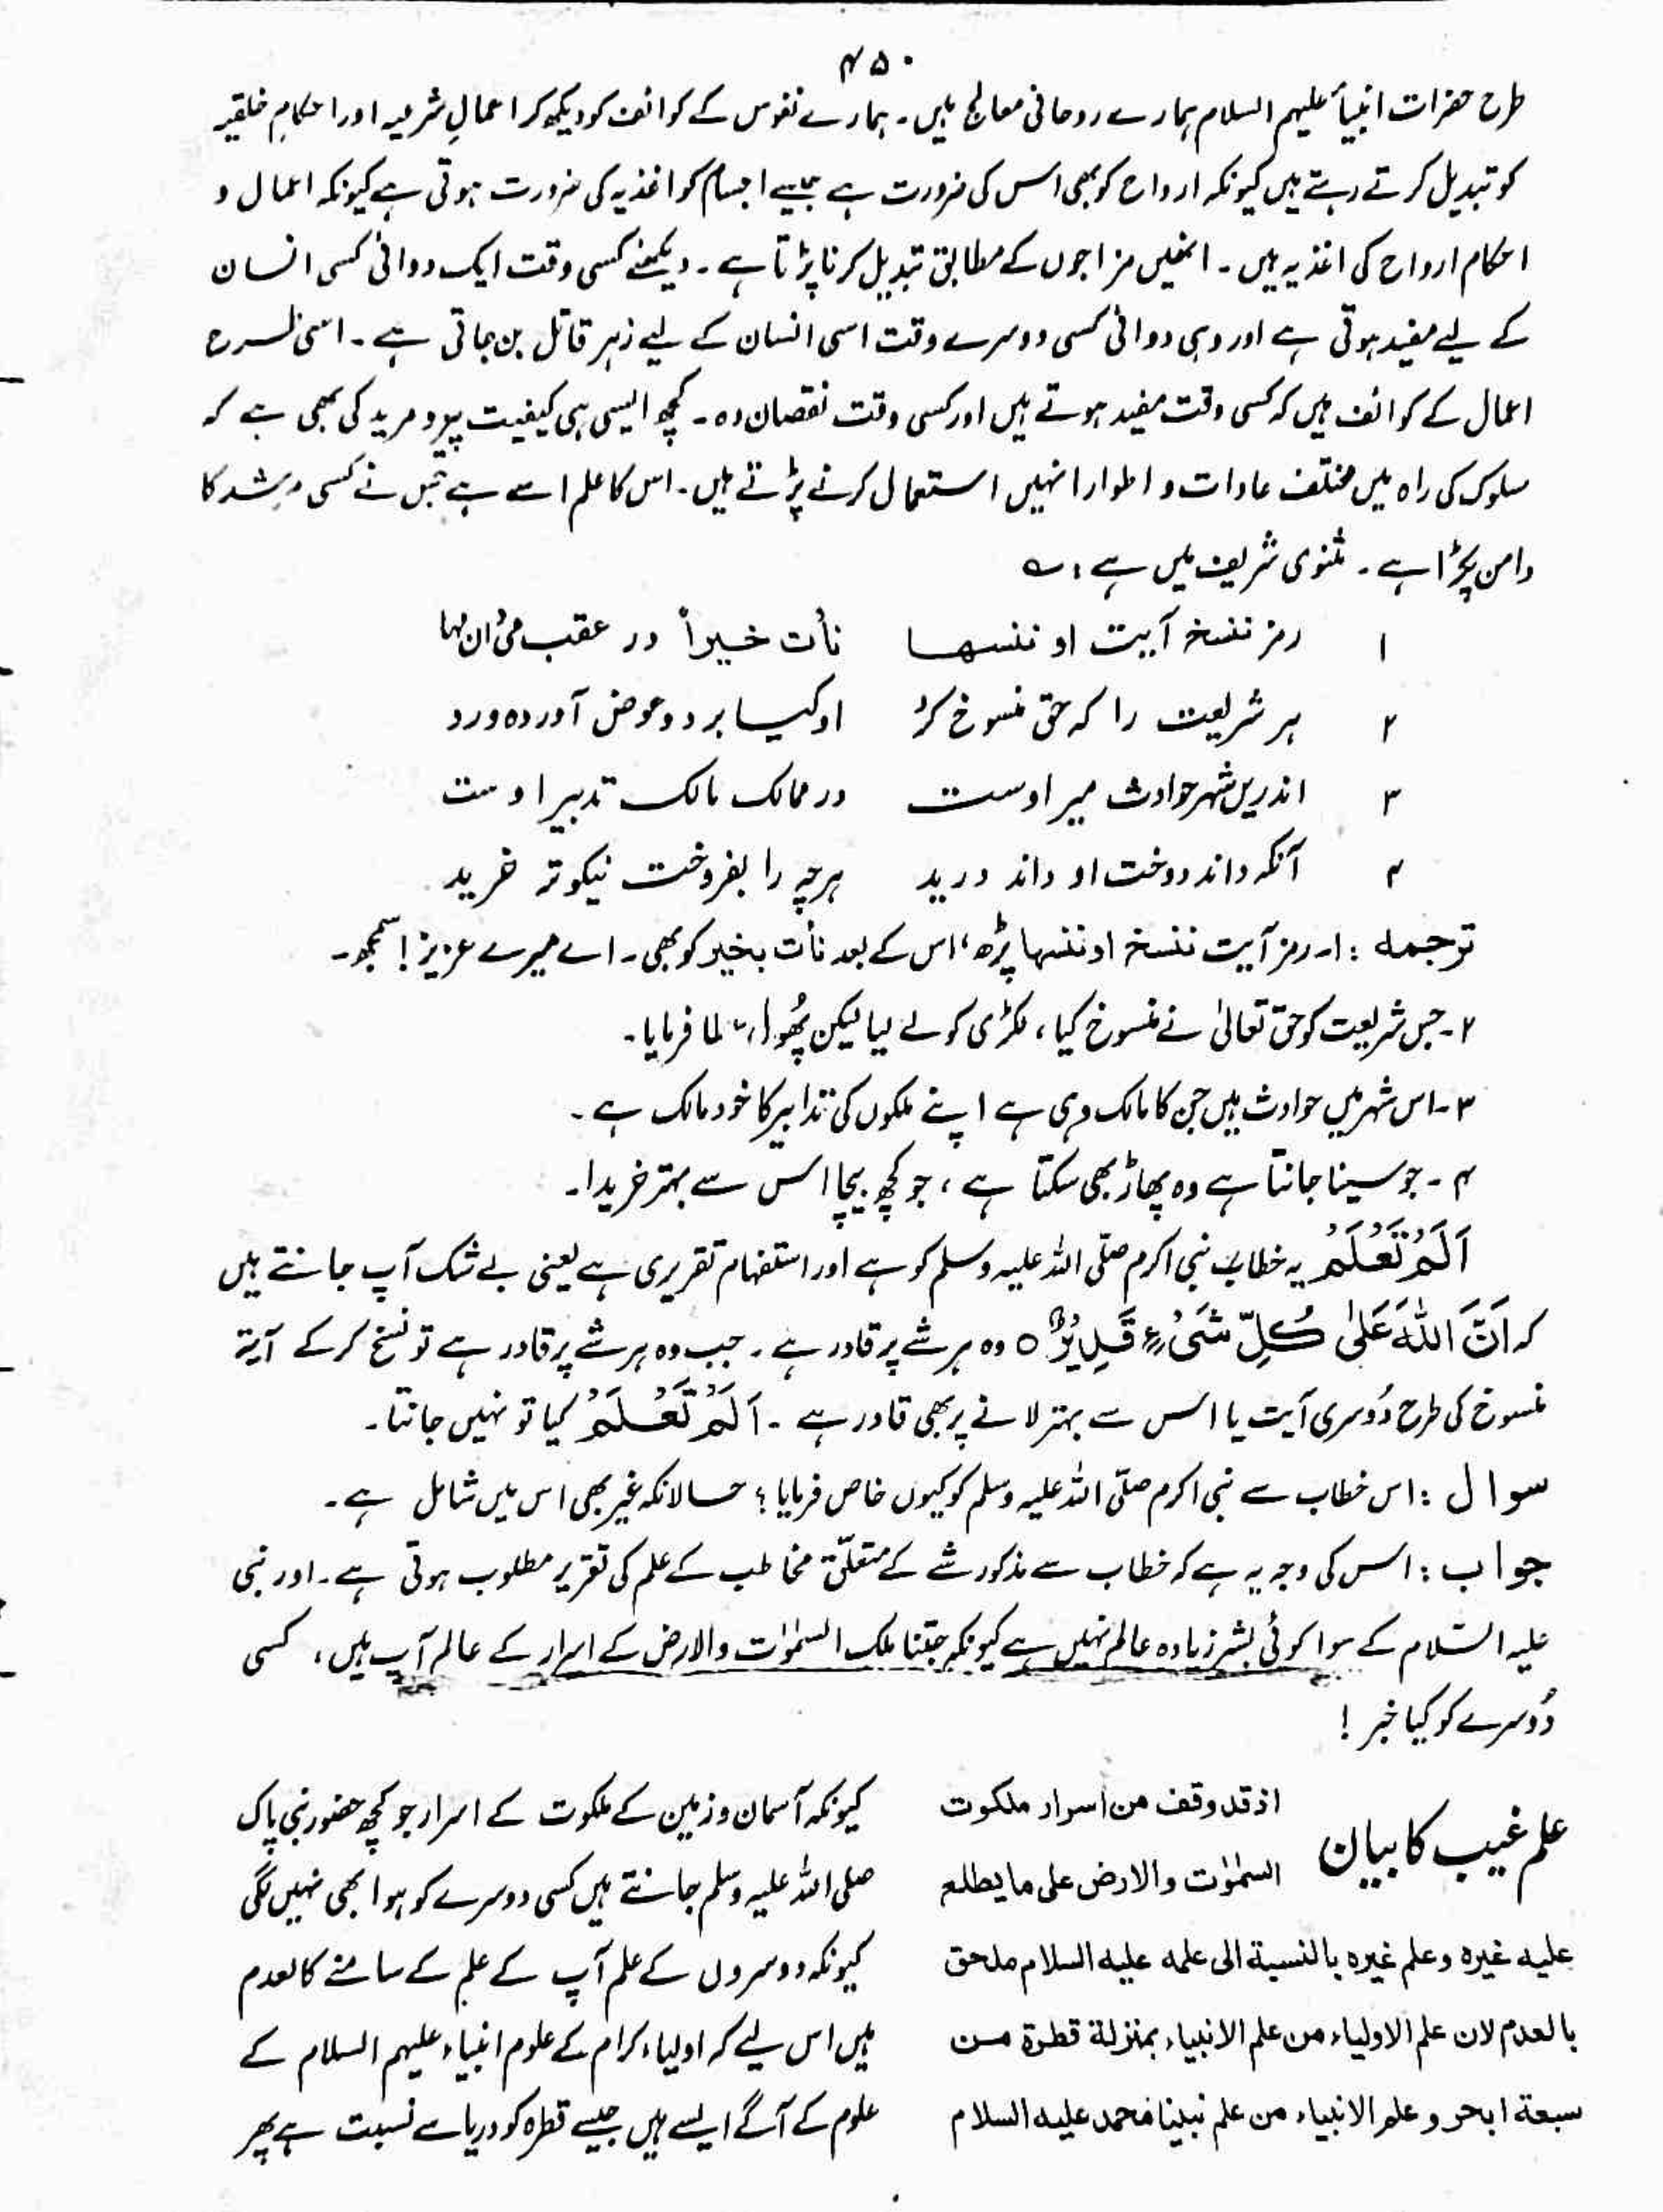 ۴۵۰
طرح حضرات انبیاء علیہم السلام ہمارے روحانی معالج ہیں۔ ہمارے نفوس کے کوائف کو دیکھ کر اعمالِ شرعیہ اور احکامِ خلقیہ
کو تبدیل کرتے رہتے ہیں کیونکہ ارواح کو بھی اس کی ضرورت ہے جیسے اجسام کو اغذیہ کی ضرورت ہوتی ہے کیونکہ اعمال و
احکام ارواح کی اغذیہ ہیں۔ انھیں مزاجوں کے مطابق تبدیل کرنا پڑتا ہے۔ دیکھئے کسی وقت ایک دوائی کسی انسان
کے لیے مفید ہوتی ہے اور وہی دوائی کسی دوسرے وقت اسی انسان کے لیے زہر قاتل بن جاتی ہے۔ اسی طرح
اعمال کے کوائف ہیں کہ کسی وقت مفید ہوتے ہیں اور کسی وقت نقصان دہ۔ کچھ ایسی ہی کیفیت پیر و مرید کی بھی ہے کہ
سلوک کی راہ میں مختلف عادات و اطوار انہیں استعمال کرنے پڑتے ہیں۔ اس کا علم اسے ہے جس نے کسی مرشد کا
دامن پکڑا ہے۔ مثنوی شریف میں ہے : ؎
۱ رمز ننسخ آیت او ننسها نأت خیراً در عقب می‌دان مها
۲ ہر شریعت را کہ حق منسوخ کرد او گیا برد و عوض آورده ورد
۳ اندریں شہر حوادث میر اوست در ممالک مالک تدبیر اوست
۴ آنکہ داند دوخت او داند درید ہرچہ را بفروخت نیکوتر خرید
ترجمہ : ۱۔ رمز آیت ننسخ او ننسہا پڑھ، اس کے بعد نأت بخیر کو بھی۔ اے میرے عزیز! سمجھ۔
۲۔ جس شریعت کو حق تعالیٰ نے منسوخ کیا، لکڑی کو لے لیا لیکن پُھول عطا فرمایا۔
۳۔ اس شہر میں حوادث ہیں جن کا مالک وہی ہے اپنے ملکوں کی تدابیر کا خود مالک ہے۔
۴۔ جو سینا جانتا ہے وہ پھاڑ بھی سکتا ہے، جو کچھ بیچا اس سے بہتر خریدا۔
اَلَمْ تَعْلَمْ یہ خطاب نبی اکرم صلّی اللہ علیہ وسلم کو ہے اور استفہام تقریری ہے یعنی بے شک آپ جانتے ہیں
کہ اَنَّ اللّٰهَ عَلٰى كُلِّ شَىْءٍ قَدِيْرٌ ○ وہ ہر شے پر قادر ہے۔ جب وہ ہر شے پر قادر ہے تو نسخ کر کے آیۃ
منسوخ کی طرح دُوسری آیت یا اس سے بہتر لانے پر بھی قادر ہے۔ اَلَمْ تَعْلَمْ کیا تو نہیں جانتا۔
سوال : اس خطاب سے نبی اکرم صلّی اللہ علیہ وسلم کو کیوں خاص فرمایا؟ حالانکہ غیر بھی اس میں شامل ہے۔
جواب : اس کی وجہ یہ ہے کہ خطاب سے مذکور شے کے متعلّق مخاطب کے علم کی تقریر مطلوب ہوتی ہے۔ اور نبی
علیہ السّلام کے سوا کوئی بشر زیادہ عالم نہیں ہے کیونکہ جتنا ملک السمٰوٰت والارض کے اسرار کے عالم آپ ہیں، کسی
دُوسرے کو کیا خبر !
علم غیب کا بیان
اذ قد وقف من اسرار ملکوت
السمٰوٰت والارض علی ما یطلع
علیه غیره وعلم غیره بالنسبة الی علمه علیه السلام ملحق
بالعدم لان علم الاولیاء من علم الانبیاء بمنزلة قطرة من
سبعة ابحر و علم الانبیاء من علم نبینا محمد علیه السلام
کیونکہ آسمان و زمین کے ملکوت کے اسرار جو کچھ حضور نبی پاک
صلی اللہ علیہ وسلم جانتے ہیں کسی دوسرے کو ہوا بھی نہیں لگی
کیونکہ دوسروں کے علم آپ کے علم کے سامنے کالعدم
ہیں اس لیے کہ اولیاء کرام کے علوم انبیاء علیہم السلام کے
علوم کے آگے ایسے ہیں جیسے قطرہ کو دریا سے نسبت ہے پھر